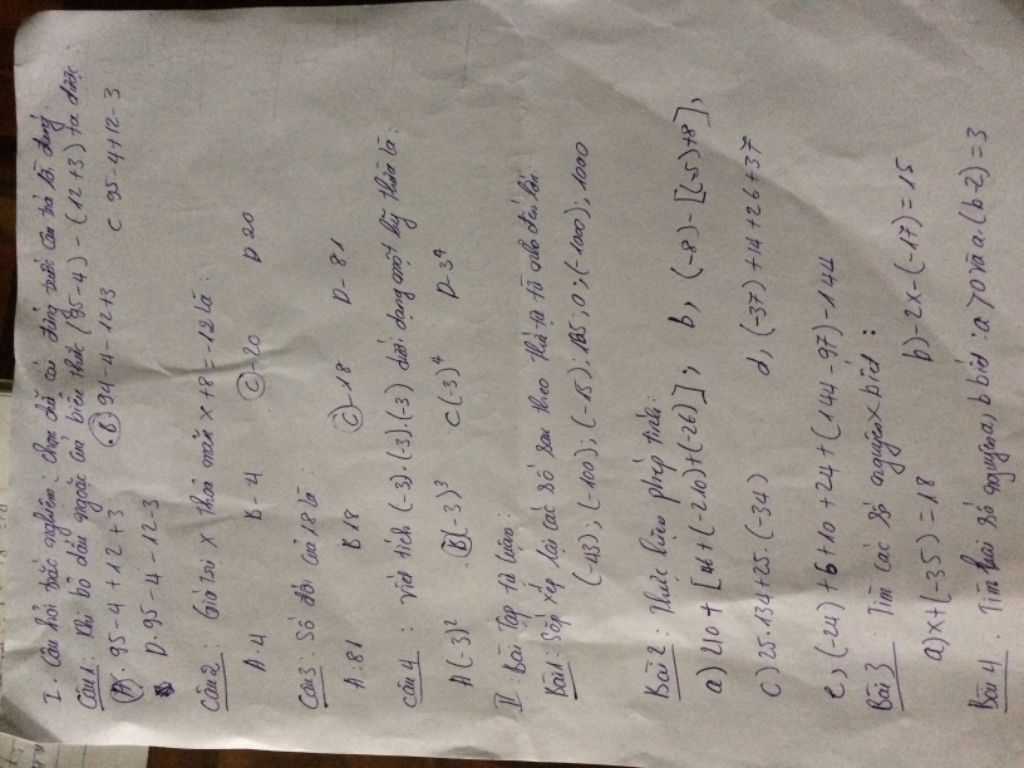 I. Câu hỏi trắc nghiệm: chọn chữ cái đứng trước câu trả lời đúng
Câu 1: Khi bỏ dấu ngoặc của biểu thức (95-4) - (12+3) ta được
A. 95-4+12+3 B) 94-4-12+3 C. 95-4+12-3
D. 95-4-12-3
Câu 2: Giá trị x thỏa mãn x+8=-12 là:
A. 4 B-4 C)-20 D 20
Câu 3: Số đối của 18 là:
A. 81 B 18 C)-18 D-81
Câu 4: viết tích (-3).(-3).(-3) dưới dạng một lũy thừa là:
A (-3)² B(-3)³ C(-3)⁴ D-3⁴
II. Bài Tập tự luận:
Bài 1: Sắp xếp lại các số sau theo thứ tự từ nhỏ đến lớn
(-43); (-100); (-15); 105; 0; (-1000); 1000
Bài 2: Thực hiện phép tính:
a) 210+[46+(-210)+(-26)]; b, (-8)-[(-5)+8];
c) 25.134+25.(-34) d, (-37)+14+26+37
e, (-24)+6+10+24+(144-97)-144
Bài 3: Tìm các số nguyên x biết:
a) x+(-35)=18 b)-2x-(-17)=15
Bài 4: Tìm hai số nguyên a, b biết: a>0 và a.(b-2)=3